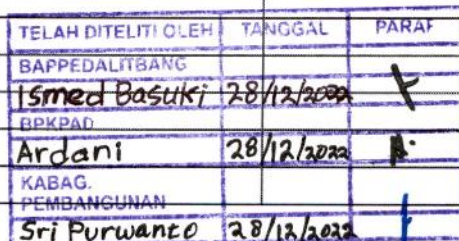 TELAH DITELITI OLEH TANGGAL PARAF
BAPPEDALITBANG
Ismed Basuki 28/12/2022
BPKPAD
Ardani 28/12/2022
KABAG.
PEMBANGUNAN
Sri Purwanto 28/12/2022